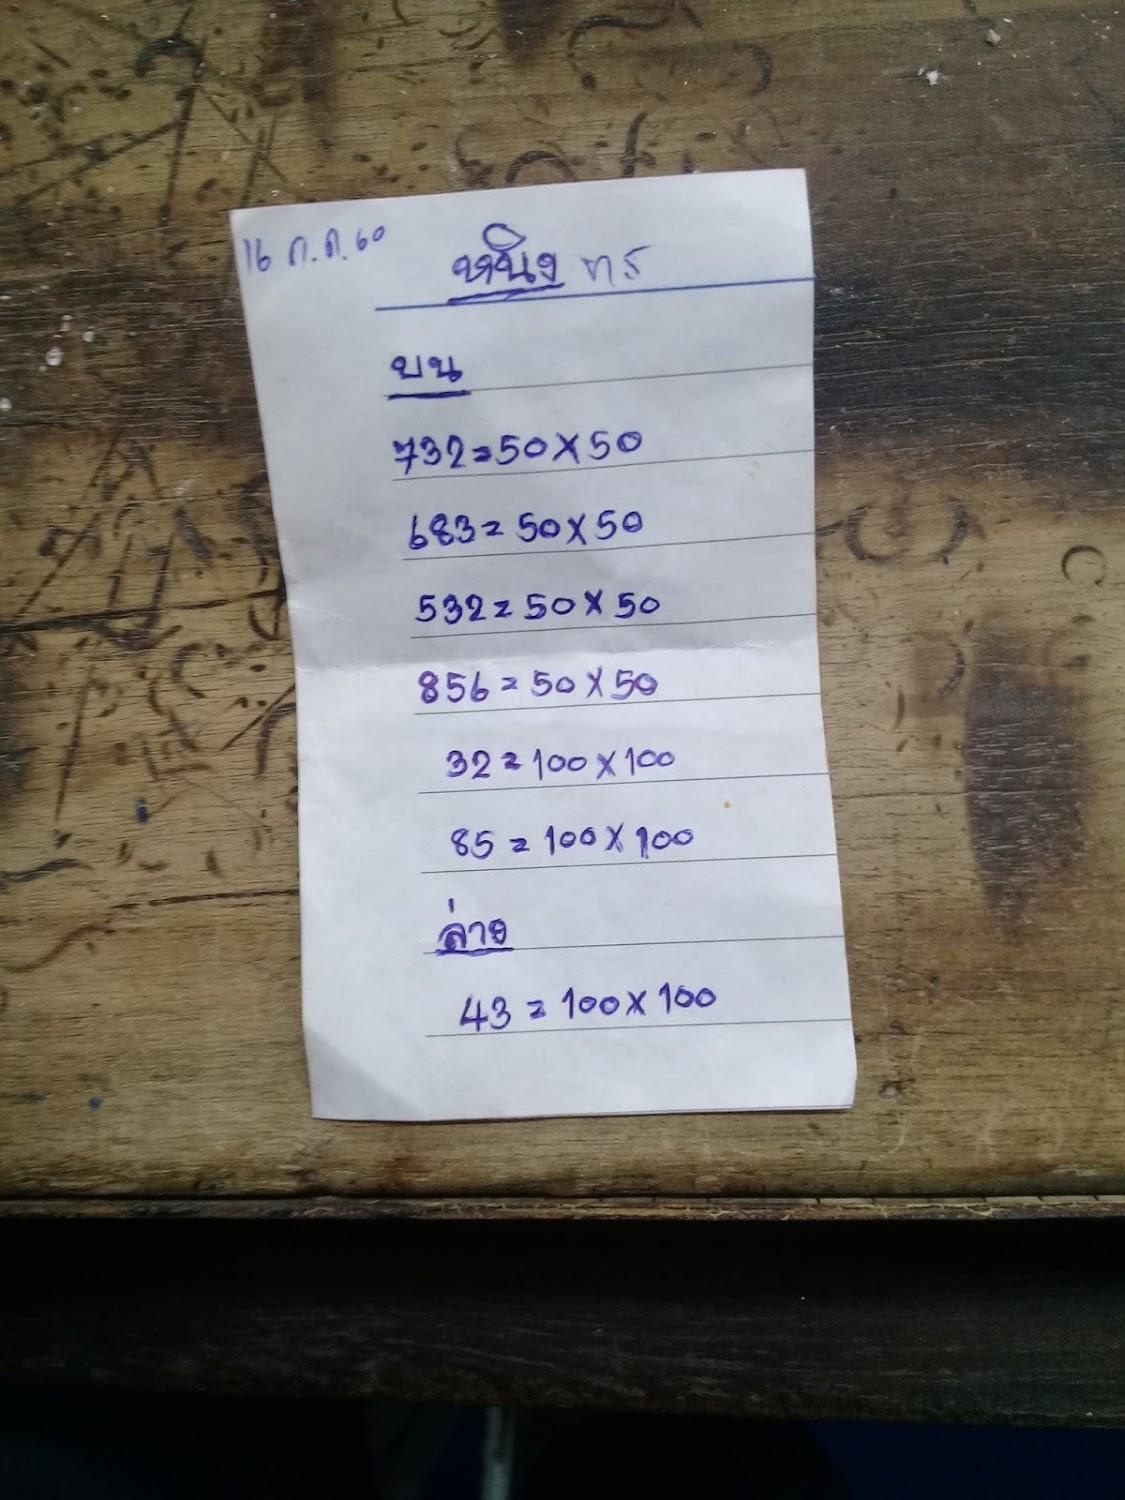 16 ก.ค.60
หนิง ทร
บน
732=50X50
683=50X50
532=50X50
856=50X50
32=100X100
85=100X100
ล่าง
43=100X100